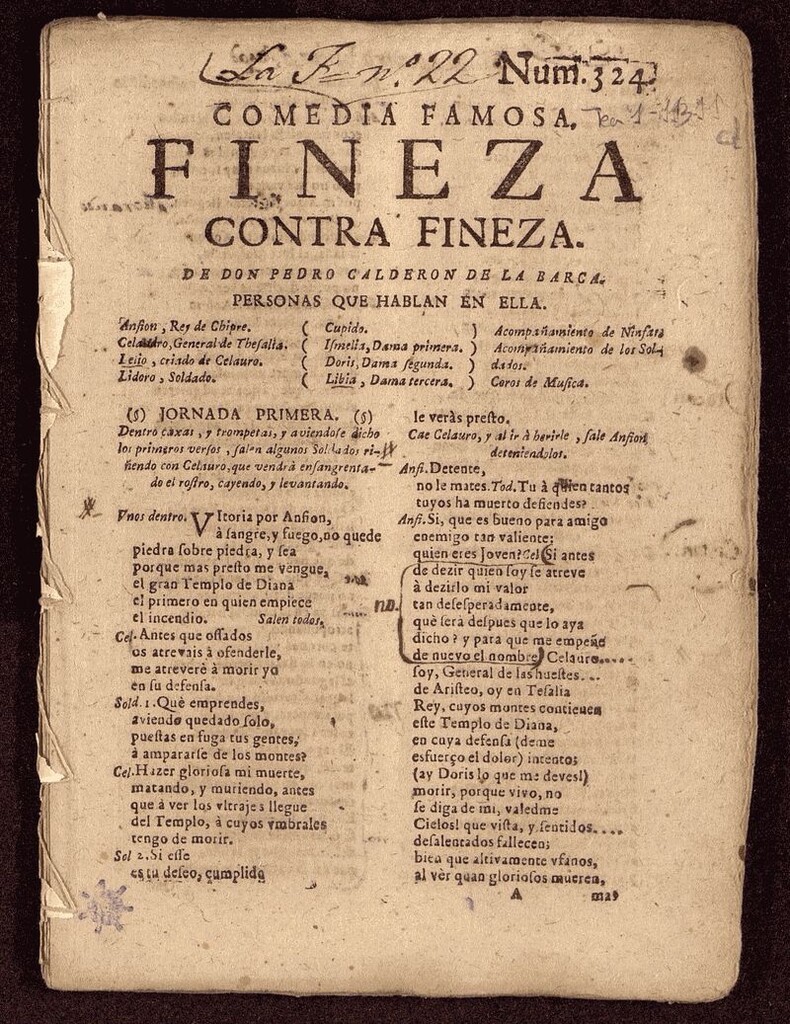 La F n.º 22 Num. 324.
COMEDIA FAMOSA.
FINEZA
CONTRA FINEZA.
DE DON PEDRO CALDERON DE LA BARCA.
PERSONAS QUE HABLAN EN ELLA.
Anfion, Rey de Chipre.
Celauro, General de Thesalia.
Lelio, criado de Celauro.
Lidoro, Soldado.
( Cupido. )
( Ismelia, Dama primera. )
( Doris, Dama segunda. )
( Libia, Dama tercera. )
Acompañamiento de Ninfas
Acompañamiento de los Sol-
dados.
Coros de Musica.
(§) JORNADA PRIMERA. (§)
Dentro caxas, y trompetas, y aviendose dicho
los primeros versos, salen algunos Soldados ri-
ñendo con Celauro, que vendrà ensangrenta-
do el rostro, cayendo, y levantando.
Vnos dentro. VItoria por Anfion,
à sangre, y fuego, no quede
piedra sobre piedra, y sea
porque mas presto me vengue,
el gran Templo de Diana
el primero en quien empiece
el incendio. Salen todos.
Cel. Antes que ossados
os atrevais à ofenderle,
me atreverè à morir yo
en su defensa.
Sold. 1. Què emprendes,
aviendo quedado solo,
puestas en fuga tus gentes,
à ampararse de los montes?
Cel. Hazer gloriosa mi muerte,
matando, y muriendo, antes
que à ver los vltrajes llegue
del Templo, à cuyos vmbrales
tengo de morir.
Sol 2. Si esse
es tu deseo, cumplido
le veràs presto.
Cae Celauro, y al ir à herirle, sale Anfion,
deteniendolos.
Anfi. Detente,
no le mates. Tod. Tu à quien tantos
tuyos ha muerto defiendes?
Anfi. Si, que es bueno para amigo
enemigo tan valiente;
quien eres Joven? Cel. Si antes
de dezir quien soy se atreve
à dezirlo mi valor
no. tan desesperadamente,
què serà despues que lo aya
dicho? y para que me empeñe
de nuevo el nombre, Celauro
soy, General de las huestes
de Aristeo, oy en Tesalia
Rey, cuyos montes contienen
este Templo de Diana,
en cuya defensa (deme
esfuerço el dolor) intento;
(ay Doris lo que me deves!)
morir, porque vivo, no
se diga de mi, valedme
Cielos! que vista, y sentidos
desalentados fallecen;
bien que altivamente vfanos,
al vèr quan gloriosos mueren,
A mas